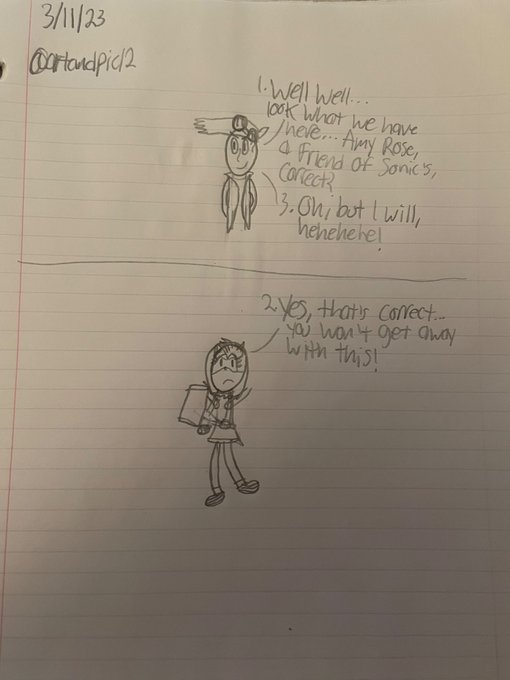 3/11/23
@artandpic12
1. Well Well...
look what we have
here... Amy Rose,
a friend of Sonic's,
correct?
3. Oh, but I will,
hehehehe!
2. Yes, that's correct...
you won't get away
with this!